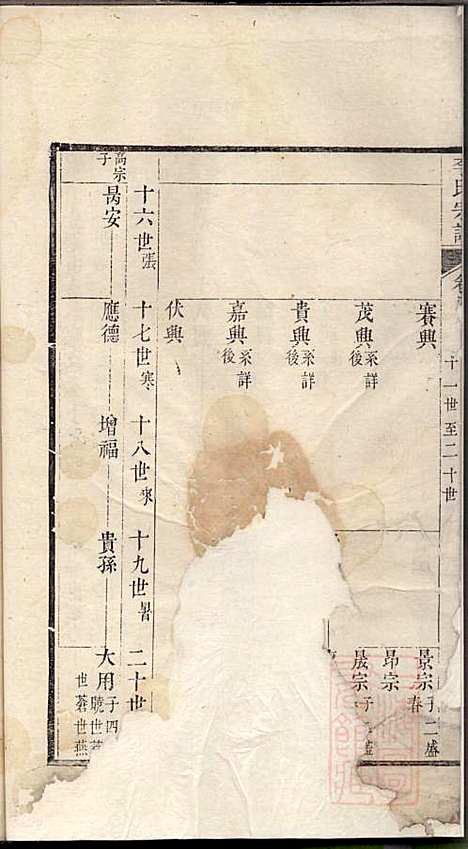 李氏宗譜
十一世至二十世
賽興
景宗 子二 盛 春
昂宗
茂興 系詳後
晟宗 子 盛
貴興 系詳後
嘉興 系詳後
伏興
十六世 張
十七世 寒
十八世 來
十九世 暑
二十世
高宗子
勗安
應德
增福
貴孫
大用 子四
世蒼 世燕